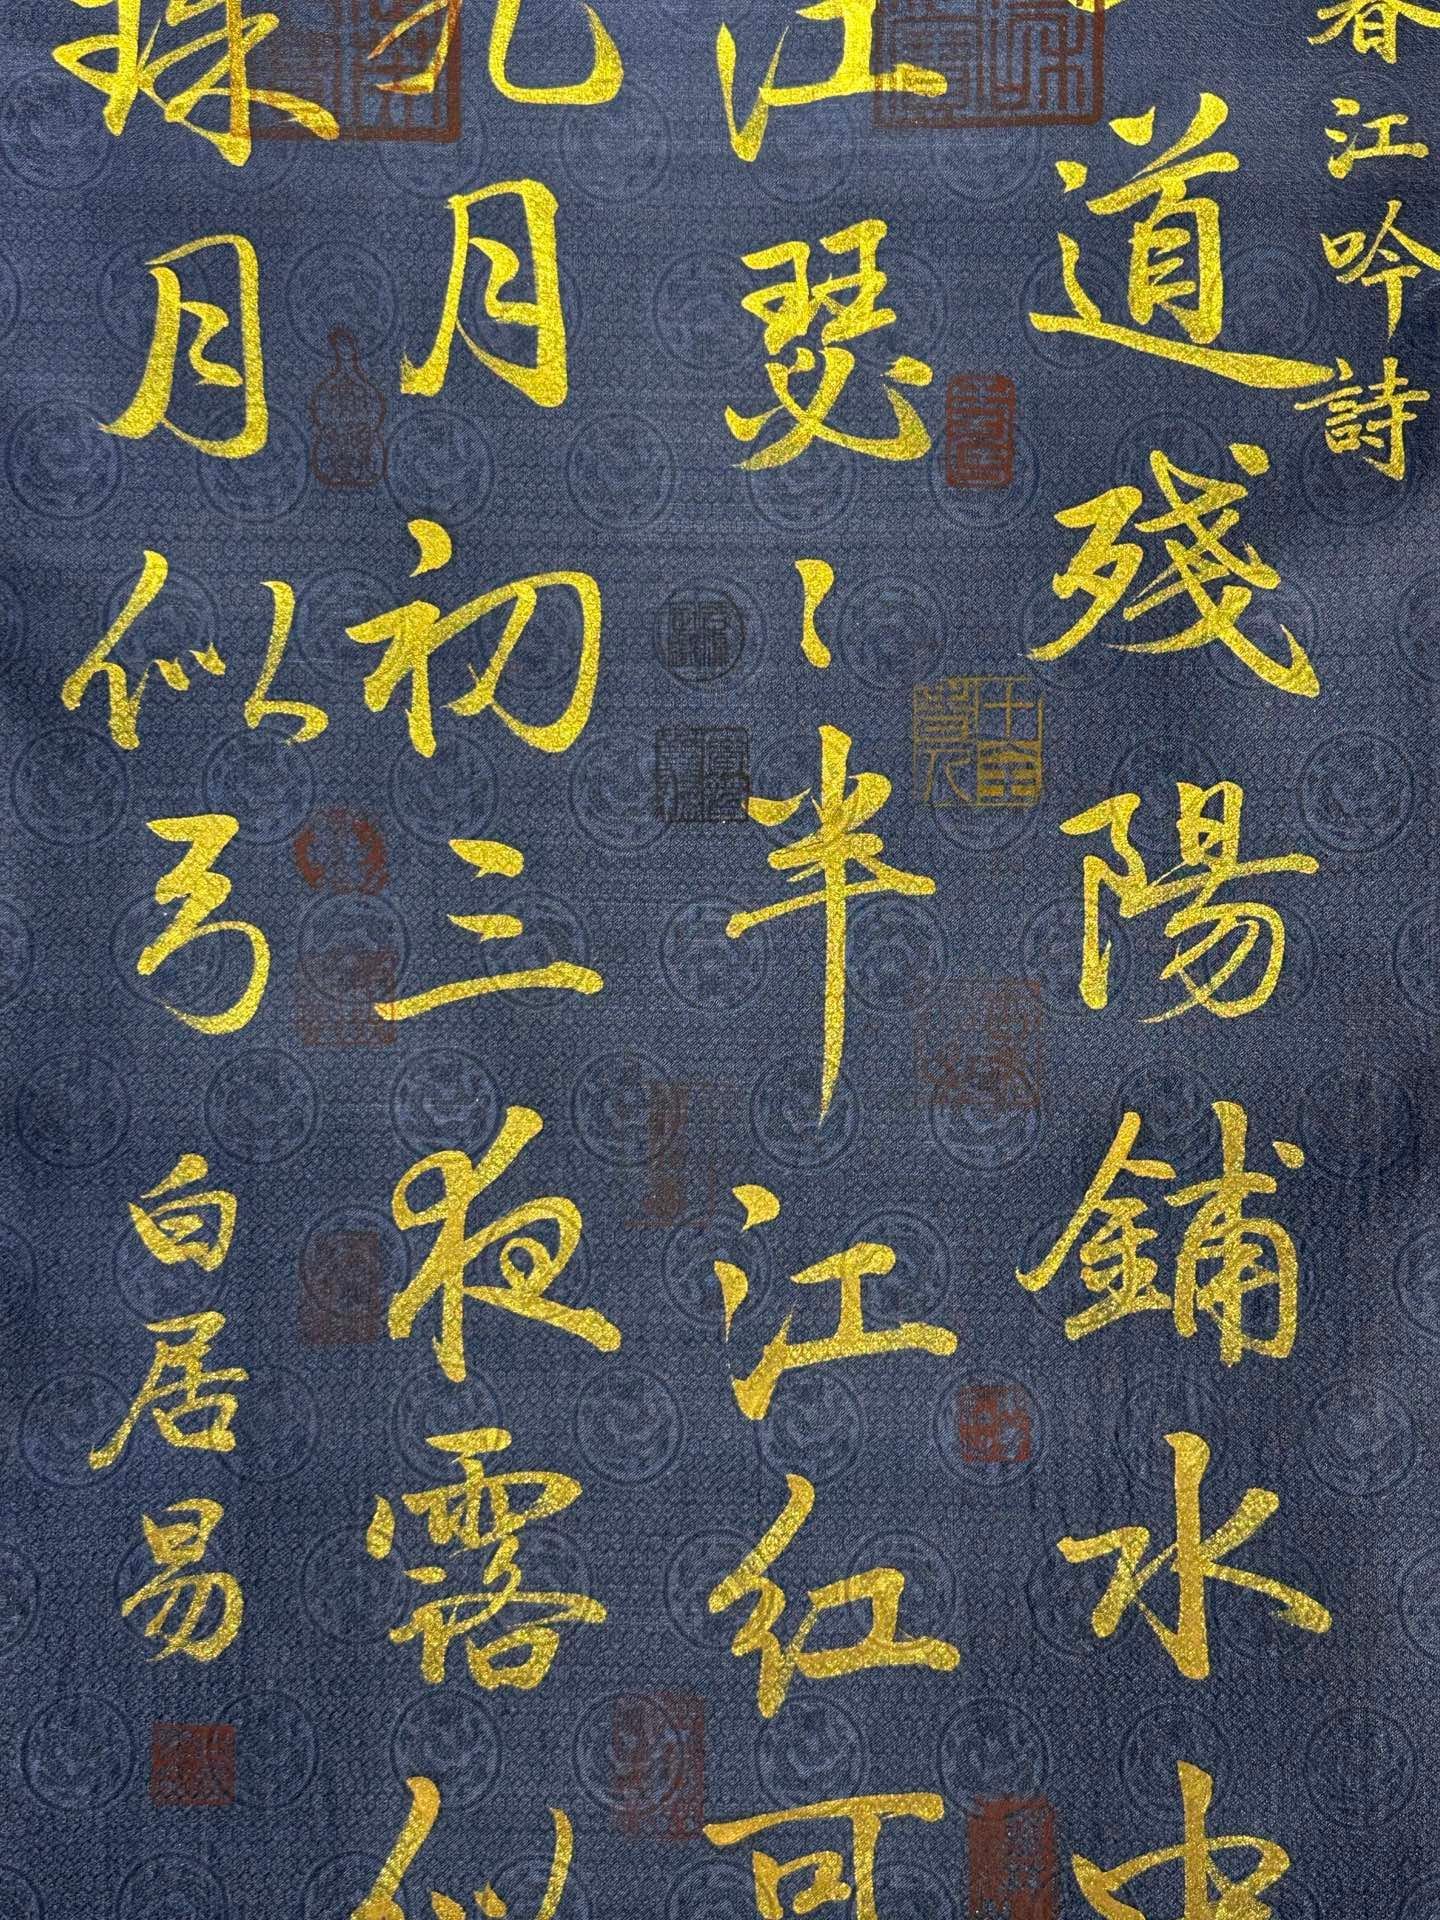 暮江吟詩
道殘陽鋪水中
江瑟々半江紅可
九月初三夜露似
珠月似弓 白居易